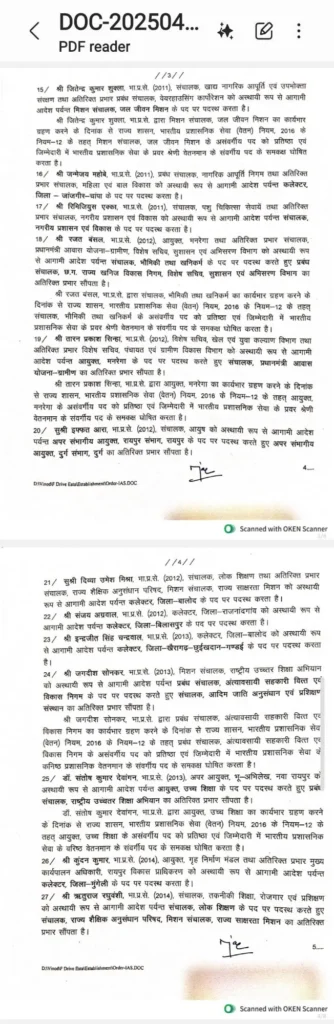 DOC-202504...
PDF reader
//3//
15/ श्री जितेन्द्र कुमार शुक्ला, भा.प्र.से. (2011), संचालक, खाद्य नागरिक आपूर्ति एवं उपभोक्ता
संरक्षण तथा अतिरिक्त प्रभार प्रबंध संचालक, वेयरहाउसिंग कार्पोरेशन को अस्थायी रूप से आगामी
आदेश पर्यन्त मिशन संचालक, जल जीवन मिशन के पद पर पदस्थ करता है।
श्री जितेन्द्र कुमार शुक्ला, भा.प्र.से. द्वारा मिशन संचालक, जल जीवन मिशन का कार्यभार
ग्रहण करने के दिनांक से राज्य शासन, भारतीय प्रशासनिक सेवा (वेतन) नियम, 2016 के
नियम-12 के तहत मिशन संचालक, जल जीवन मिशन के असंवर्गीय पद को प्रतिष्ठा एवं
जिम्मेदारी में भारतीय प्रशासनिक सेवा के प्रवर श्रेणी वेतनमान के संवर्गीय पद के समकक्ष घोषित
करता है।
16/ श्री जन्मेजय महोबे, भा.प्र.से. (2011), प्रबंध संचालक, नागरिक आपूर्ति निगम तथा अतिरिक्त
प्रभार संचालक, महिला एवं बाल विकास को अस्थायी रूप से आगामी आदेश पर्यन्त कलेक्टर,
जिला - जांजगीर-चांपा के पद पर पदस्थ करता है।
17/ श्री रिमिजियुस एक्का, भा.प्र.से. (2011), संचालक, पशु चिकित्सा सेवायें तथा अतिरिक्त
प्रभार संचालक, नगरीय प्रशासन एवं विकास को अस्थायी रूप से आगामी आदेश पर्यन्त संचालक,
नगरीय प्रशासन एवं विकास के पद पर पदस्थ करता है।
18/ श्री रजत बंसल, भा.प्र.से. (2012), आयुक्त, मनरेगा तथा अतिरिक्त प्रभार संचालक,
प्रधानमंत्री आवास योजना-ग्रामीण, विशेष सचिव, सुशासन एवं अभिसरण विभाग को अस्थायी रूप
से आगामी आदेश पर्यन्त संचालक, भौमिकी तथा खनिकर्म के पद पर पदस्थ करते हुए प्रबंध
संचालक, छ.ग. राज्य खनिज विकास निगम, विशेष सचिव, सुशासन एवं अभिसरण विभाग का
अतिरिक्त प्रभार सौंपता है।
श्री रजत बंसल, भा.प्र.से. द्वारा संचालक, भौमिकी तथा खनिकर्म का कार्यभार ग्रहण करने के
दिनांक से राज्य शासन, भारतीय प्रशासनिक सेवा (वेतन) नियम, 2016 के नियम-12 के तहत
संचालक, भौमिकी तथा खनिकर्म के असंवर्गीय पद को प्रतिष्ठा एवं जिम्मेदारी में भारतीय
प्रशासनिक सेवा के प्रवर श्रेणी वेतनमान के संवर्गीय पद के समकक्ष घोषित करता है।
19/ श्री तारन प्रकाश सिन्हा, भा.प्र.से. (2012), विशेष सचिव, खेल एवं युवा कल्याण विभाग तथा
अतिरिक्त प्रभार विशेष सचिव, पंचायत एवं ग्रामीण विकास विभाग को अस्थायी रूप से आगामी
आदेश पर्यन्त आयुक्त, मनरेगा के पद पर पदस्थ करते हुए संचालक, प्रधानमंत्री आवास
योजना-ग्रामीण का अतिरिक्त प्रभार सौंपता है।
श्री तारन प्रकाश सिन्हा, भा.प्र.से. द्वारा आयुक्त, मनरेगा का कार्यभार ग्रहण करने के दिनांक
से राज्य शासन, भारतीय प्रशासनिक सेवा (वेतन) नियम, 2016 के नियम-12 के तहत आयुक्त,
मनरेगा के असंवर्गीय पद को प्रतिष्ठा एवं जिम्मेदारी में भारतीय प्रशासनिक सेवा के प्रवर श्रेणी
वेतनमान के संवर्गीय पद के समकक्ष घोषित करता है।
20/ सुश्री इफ्फत आरा, भा.प्र.से. (2012), संचालक, आयुष को अस्थायी रूप से आगामी आदेश
पर्यन्त अपर संभागीय आयुक्त, रायपुर संभाग, रायपुर के पद पर पदस्थ करते हुए अपर संभागीय
आयुक्त, दुर्ग संभाग, दुर्ग का अतिरिक्त प्रभार सौंपता है।
4....
D:\Vinod\F Drive Data\Establishment\Order-IAS.DOC
Scanned with OKEN Scanner
//4//
21/ सुश्री दिव्या उमेश मिश्रा, भा.प्र.से. (2012), संचालक, लोक शिक्षण तथा अतिरिक्त प्रभार
संचालक, राज्य शैक्षिक अनुसंधान परिषद, मिशन संचालक, राज्य साक्षरता मिशन को अस्थायी
रूप से आगामी आदेश पर्यन्त कलेक्टर, जिला-बालोद के पद पर पदस्थ करता है।
22/ श्री संजय अग्रवाल, भा.प्र.से. (2012), कलेक्टर, जिला-राजनांदगांव को अस्थायी रूप से
आगामी आदेश पर्यन्त कलेक्टर, जिला-बिलासपुर के पद पर पदस्थ करता है।
23/ श्री इन्द्रजीत सिंह चन्द्रवाल, भा.प्र.से. (2013), कलेक्टर, जिला-बालोद को अस्थायी रूप
से आगामी आदेश पर्यन्त कलेक्टर, जिला-खैरागढ़-छुईखदान-गण्डई के पद पर पदस्थ करता
है।
24/ श्री जगदीश सोनकर, भा.प्र.से. (2013), मिशन संचालक, राष्ट्रीय उच्चतर शिक्षा अभियान
को अस्थायी रूप से आगामी आदेश पर्यन्त प्रबंध संचालक, अंत्यावसायी सहकारी वित्त एवं
विकास निगम के पद पर पदस्थ करते हुए संचालक, आदिम जाति अनुसंधान एवं प्रशिक्षण
संस्थान का अतिरिक्त प्रभार सौंपता है।
श्री जगदीश सोनकर, भा.प्र.से. द्वारा प्रबंध संचालक, अंत्यावसायी सहकारी वित्त एवं
विकास निगम का कार्यभार ग्रहण करने के दिनांक से राज्य शासन, भारतीय प्रशासनिक सेवा
(वेतन) नियम, 2016 के नियम-12 के तहत प्रबंध संचालक, अंत्यावसायी सहकारी वित्त एवं
विकास निगम के असंवर्गीय पद को प्रतिष्ठा एवं जिम्मेदारी में भारतीय प्रशासनिक सेवा के
कनिष्ठ प्रशासनिक वेतनमान के संवर्गीय पद के समकक्ष घोषित करता है।
25/ डॉ. संतोष कुमार देवांगन, भा.प्र.से. (2013), अपर आयुक्त, भू-अभिलेख, नवा रायपुर को
अस्थायी रूप से आगामी आदेश पर्यन्त आयुक्त, उच्च शिक्षा के पद पर पदस्थ करते हुए प्रबंध
संचालक, राष्ट्रीय उच्चतर शिक्षा अभियान का अतिरिक्त प्रभार सौंपता है।
डॉ. संतोष कुमार देवांगन, भा.प्र.से. द्वारा आयुक्त, उच्च शिक्षा का कार्यभार ग्रहण करने
के दिनांक से राज्य शासन, भारतीय प्रशासनिक सेवा (वेतन) नियम, 2016 के नियम-12 के
तहत आयुक्त, उच्च शिक्षा के असंवर्गीय पद को प्रतिष्ठा एवं जिम्मेदारी में भारतीय प्रशासनिक
सेवा के वरिष्ठ वेतनमान के संवर्गीय पद के समकक्ष घोषित करता है।
26/ श्री कुंदन कुमार, भा.प्र.से. (2014), आयुक्त, गृह निर्माण मंडल तथा अतिरिक्त प्रभार मुख्य
कार्यपालन अधिकारी, रायपुर विकास प्राधिकरण को अस्थायी रूप से आगामी आदेश पर्यन्त
कलेक्टर, जिला-मुंगेली के पद पर पदस्थ करता है।
27/ श्री ऋतुराज रघुवंशी, भा.प्र.से. (2014), संचालक, तकनीकी शिक्षा, रोजगार एवं प्रशिक्षण
को अस्थायी रूप से आगामी आदेश पर्यन्त संचालक, लोक शिक्षण के पद पर पदस्थ करते हुए
संचालक, राज्य शैक्षिक अनुसंधान परिषद, मिशन संचालक, राज्य साक्षरता मिशन का अतिरिक्त
प्रभार सौंपता है।
5....
D:\Vinod\F Drive Data\Establishment\Order-IAS.DOC
Scanned with OKEN Scanner